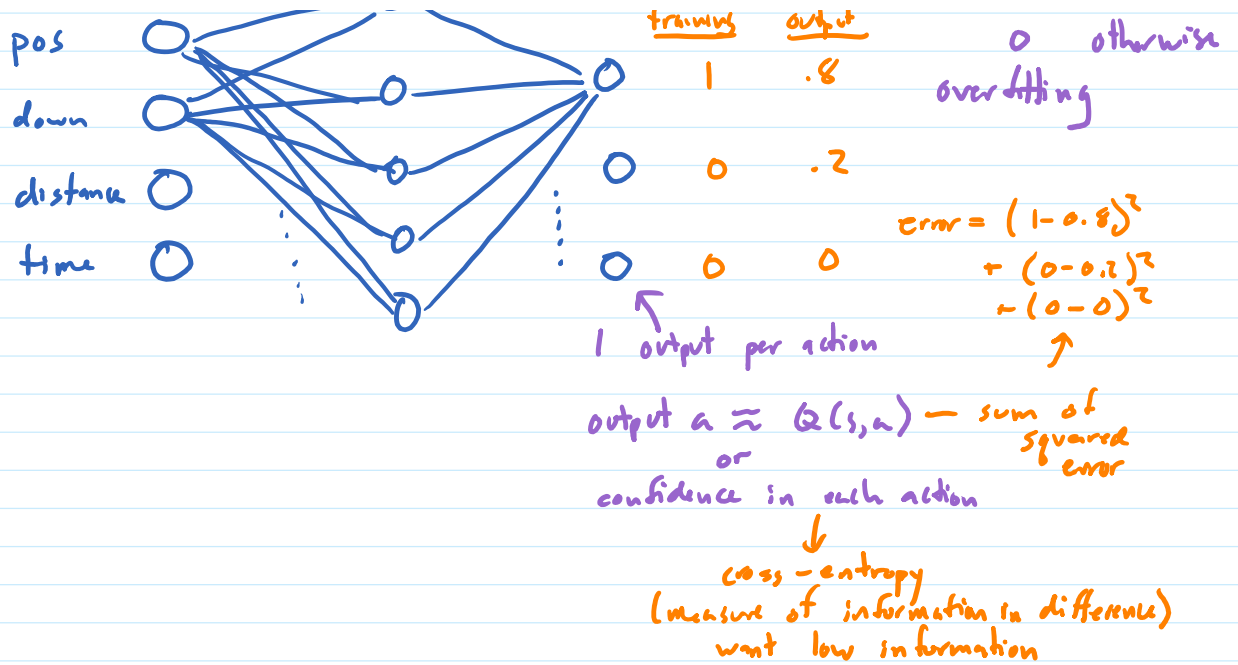 pos
down
distance
time
training output
1 .8
0 .2
0 0
0 otherwise
overfitting
error = (1-0.8)²
+ (0-0.2)²
+ (0-0)²
1 output per action
output a ≈ Q(s,a) — sum of
squared
error
or
confidence in each action
cross-entropy
(measure of information in difference)
want low information